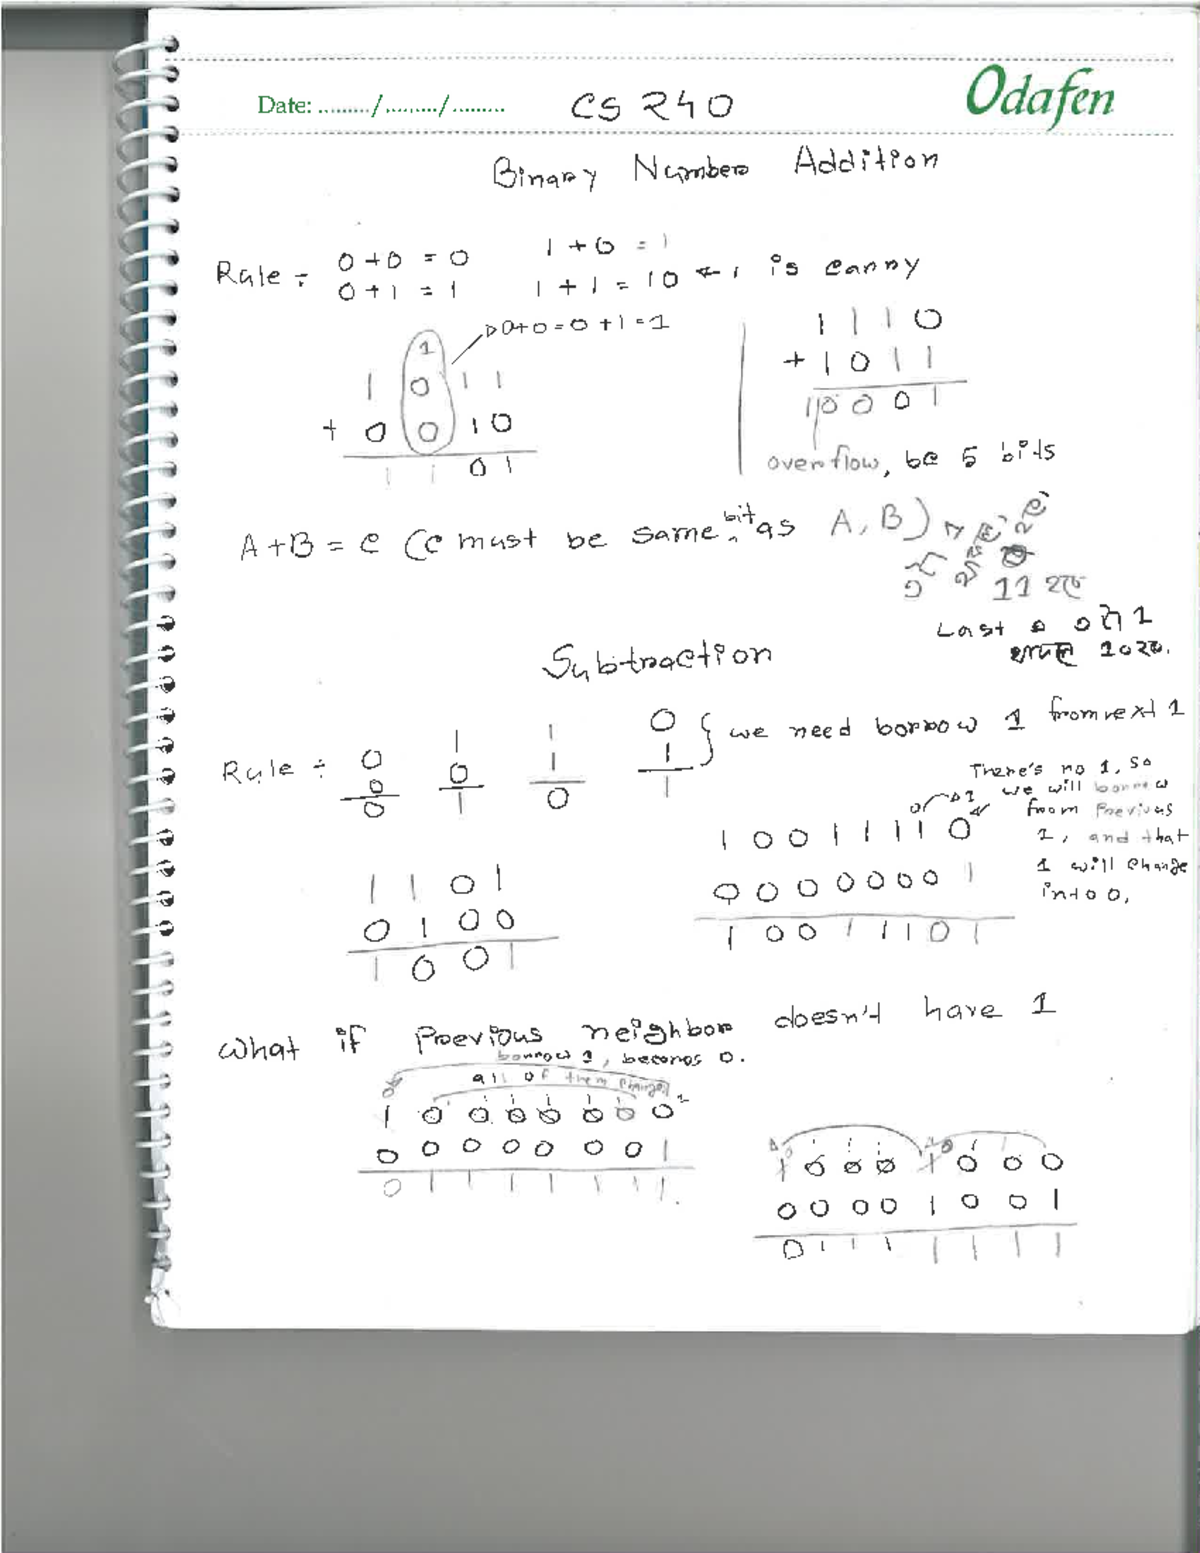 Date: ........./........./.........
CS 240
Odafen
Binary Number Addition
Rule ÷ 0+0 = 0
0+1 = 1
1+0 = 1
1+1 = 10 ← 1 is carry
0+0=0+1=1
1
1 0 1 1
+ 0 0 1 0
1 1 0 1
1 1 1 0
+ 1 0 1 1
1 0 0 0 1
overflow, be 5 bits
A+B = C (C must be same bit as A, B)
11
Last
1
Subtraction
Rule ÷
0
0
0
1
0
1
1
1
0
0
1
1
we need borrow 1 from next 1
There's no 1, so
we will borrow
from Previous
1, and that
1 will change
into 0,
1 1 0 1
0 1 0 0
1 0 0 1
0 1
1 0 0 1 1 1 1 0
0 0 0 0 0 0 0 1
1 0 0 1 1 1 0 1
What if Previous neighbor doesn't have 1
borrow 1, becomes 0.
all of them change
1 0 0 0 0 0 0 0
0 0 0 0 0 0 0 1
0 1 1 1 1 1 1 1
1 0 0 0 1 0 0 0
0 0 0 0 1 0 0 1
0 1 1 1 1 1 1 1